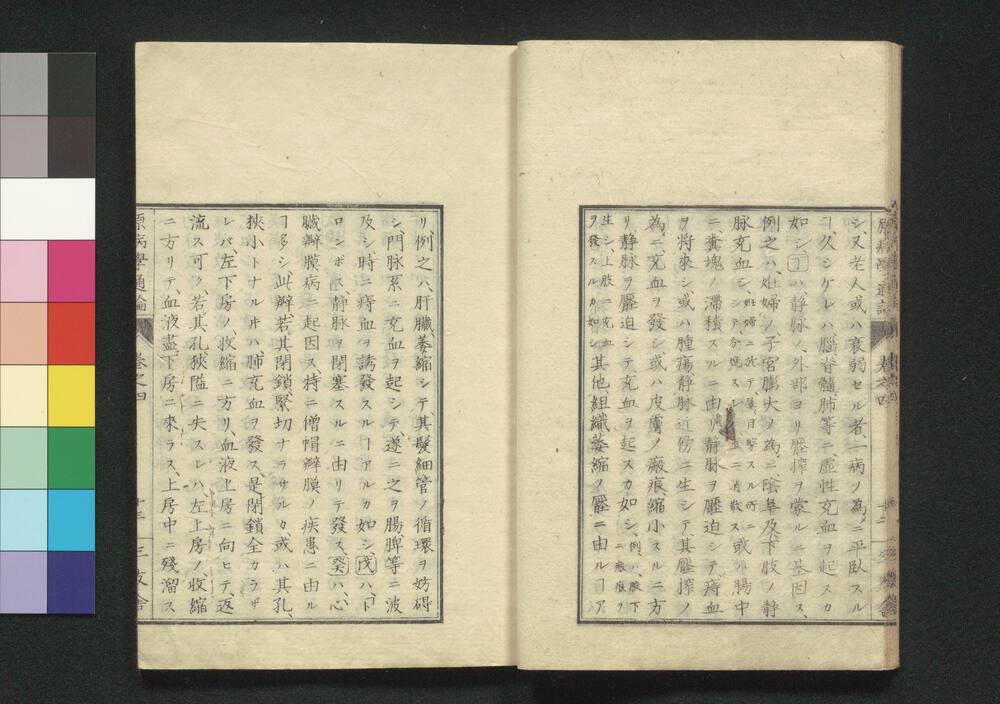 原病學通論 卷之四 十二 三友舎
シ、又老人或ハ衰弱セル者、一病ノ為ニ平臥スル
ヿ、久シケレハ、腦脊髓肺等ニ虛性充血ヲ起スカ
如シ、丁ハ静脉ノ、外部ヨリ壓搾ヲ蒙ルニ基因ス、
例之ハ、妊婦ノ子宮膨大ノ為ニ、陰阜及下肢ノ静
脉充血シ、妊婦ニ於テ屢目撃スル所ニシテ分娩スレハ直ニ消散ス或ハ腸中
ニ、糞塊ノ滞積スルニ由リ静脉ヲ壓迫シテ、痔血
ヲ將來シ、或ハ腫瘍静脉ノ近傍ニ生シテ其壓搾ノ
為ニ、充血ヲ發シ、或ハ皮膚ノ瘢痕縮小スルニ方
リ、静脉ヲ壓迫シテ、充血ヲ起スカ如シ、例ハ腋下ニ瘢痕ヲ
生シ、上肢ニ充血ヲ發スルカ如シ其他組織萎縮ノ壓ニ由ルヿア
リ、例之ハ、肝臓萎縮シテ其髮細管ノ循環ヲ妨碍
シ、門脉系ニ充血ヲ起シテ、遂ニ之ヲ腸脾等ニ波
及シ、時ニ痔血ヲ誘發スルヿアルカ如シ、戊ハ、ト
ロンボース静脉ヲ閉塞スルニ由リテ發ス、癸ハ、心
臓瓣膜病ニ起因ス、特ニ僧帽瓣膜ノ疾患ニ由ル
ヿ多シ、此瓣、若其閉鎖緊切ナラサルカ或ハ其孔、
狹小トナル片ハ肺充血ヲ發ス、是閉鎖全カラザ
レバ、左下房ノ、收縮ニ方リ、血液上房ニ向ヒテ、返
流ス可ク、若其孔狹隘ニ失スレハ、左上房ノ、收縮
ニ方リテ、血液盡ク下房ニ來ラス、上房中ニ殘溜ス
原病學通論 卷之四 十三 三友舎